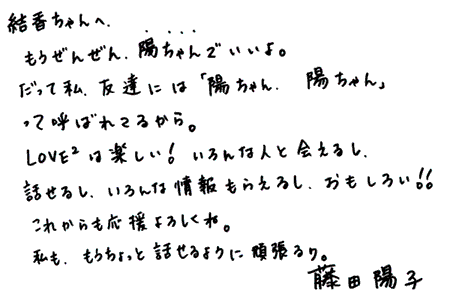 結香ちゃんへ、
もうぜんぜん、陽ちゃんでいいよ。
だって私、友達には「陽ちゃん、陽ちゃん」
って呼ばれてるから。
LOVE²は楽しい！いろんな人と会えるし、
話せるし、いろんな情報もらえるし、おもしろい!!
これからも応援よろしくね。
私も、もうちょっと話せるように頑張るっ。
藤田陽子